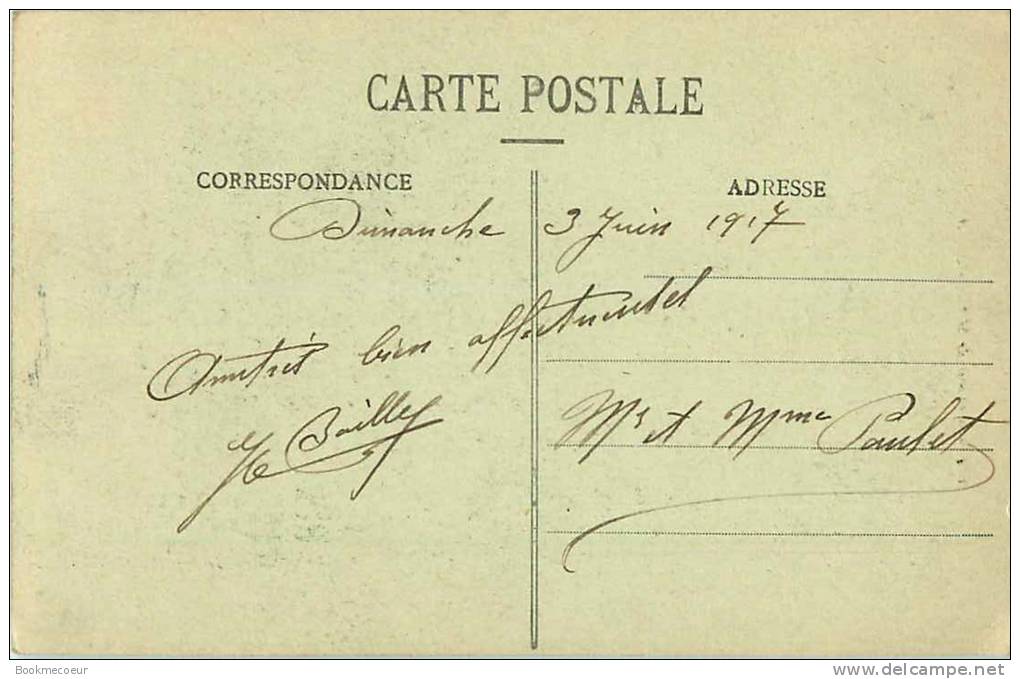 CARTE POSTALE
CORRESPONDANCE
ADRESSE
Dimanche 3 Juin 1917
Amitiés bien affectueuses
Bailly
Mr et Mme Paulet
Bookmecoeur
www.delcampe.net